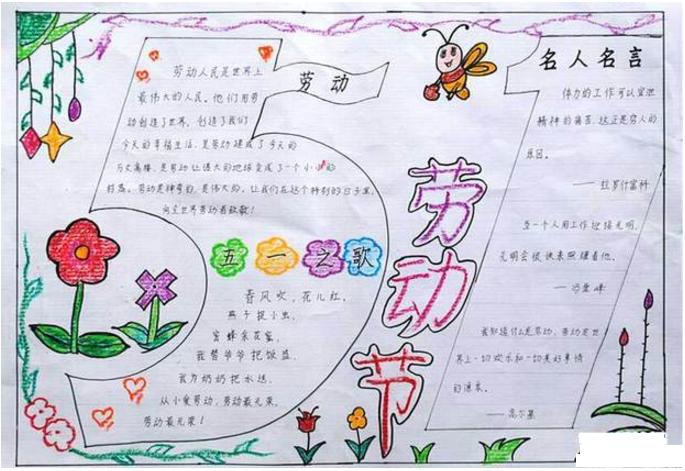 劳动
劳动人民是世界上
最伟大的人民。他们用劳
动创造了世界，创造了我们
今天的幸福生活。是劳动建成了今天的
万丈高楼，是劳动让偌大的地球变成了一个小小的
村落。劳动是神奇的，是伟大的，让我们在这个特别的日子里，
向全世界劳动者致敬！
五一之歌
春风吹，花儿红，
燕子捉小虫，
蜜蜂采花蜜，
我帮爷爷把饭盛，
我为奶奶把水送，
从小爱劳动，劳动最光荣，
劳动最光荣！
劳动节
名人名言
体力的工作可以宣泄
精神的痛苦，这正是穷人的
原因。
——拉罗什富科
当一个人用工作迎接光明，
光明会很快来照耀着他。
——冯学峰
我知道什么是劳动，劳动是世
界上一切欢乐和一切美好事情
的源泉。
——高尔基